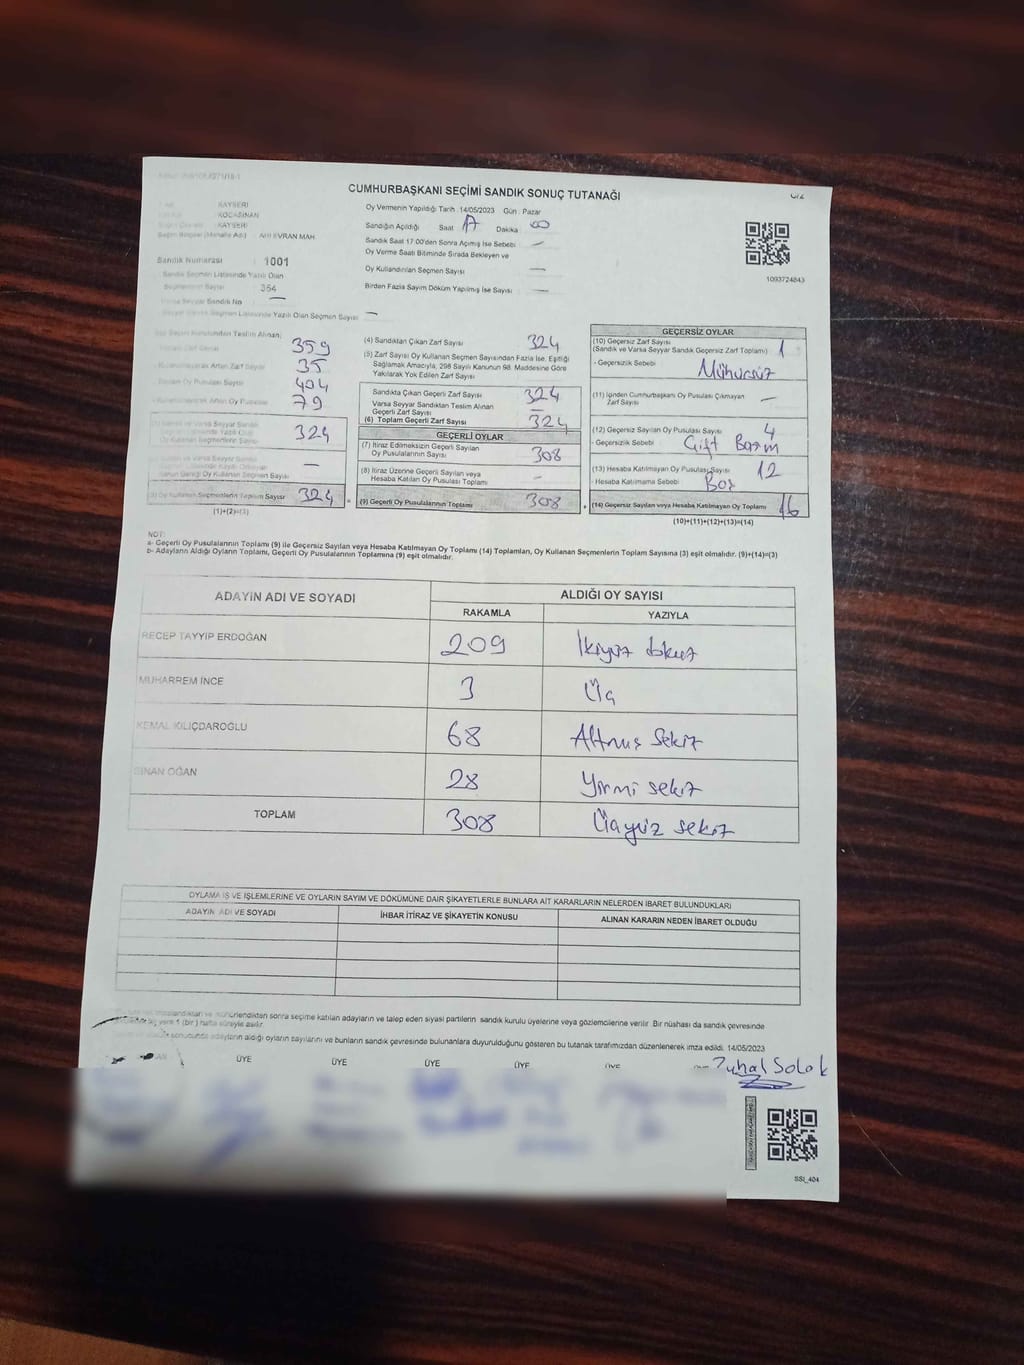 CUMHURBAŞKANI SEÇİMİ SANDIK SONUÇ TUTANAĞI
KAYSERİ
KOCASİNAN
KAYSERİ
AHİ EVRAN MAH.
Sandık Numarası 1001
354
Oy Vermenin Yapıldığı Tarih 14/05/2023 Gün : Pazar
Sandığın Açıldığı Saat 17 Dakika 00
Sandık Saat 17:00'den Sonra Açımış İse Sebebi —
Oy Verme Saati Bitiminde Sırada Bekleyen ve
Oy Kullandırılan Seçmen Sayısı —
Birden Fazla Sayım Döküm Yapılmış İse Sayısı —
1093724843
359
35
404
79
324
—
(3) Oy Kullanan Seçmenlerin Toplam Sayısı 324
(1)+(2)=(3)
(4) Sandıktan Çıkan Zarf Sayısı 324
(5) Zarf Sayısı Oy Kullanan Seçmen Sayısından Fazla İse, Eşitliği
Sağlamak Amacıyla, 298 Sayılı Kanunun 98. Maddesine Göre
Yakılarak Yok Edilen Zarf Sayısı
Sandıkta Çıkan Geçerli Zarf Sayısı 324
Varsa Seyyar Sandıktan Teslim Alınan
Geçerli Zarf Sayısı —
(6) Toplam Geçerli Zarf Sayısı 324
GEÇERLİ OYLAR
(7) İtiraz Edilmeksizin Geçerli Sayılan
Oy Pusulalarının Sayısı 308
(8) İtiraz Üzerine Geçerli Sayılan veya
Hesaba Katılan Oy Pusulası Toplamı -
(9) Geçerli Oy Pusulalarının Toplamı 308
GEÇERSİZ OYLAR
(10) Geçersiz Zarf Sayısı
(Sandık ve Varsa Seyyar Sandık Geçersiz Zarf Toplamı) 1
- Geçersizlik Sebebi Mühürsüz
(11) İçinden Cumhurbaşkanı Oy Pusulası Çıkmayan
Zarf Sayısı —
(12) Geçersiz Sayılan Oy Pusulası Sayısı 4
- Geçersizlik Sebebi Çift Basım
(13) Hesaba Katılmayan Oy Pusulası Sayısı 12
- Hesaba Katılmama Sebebi Boş
(14) Geçersiz Sayılan veya Hesaba Katılmayan Oy Toplamı 16
(10)+(11)+(12)+(13)=(14)
NOT:
a- Geçerli Oy Pusulalarının Toplamı (9) ile Geçersiz Sayılan veya Hesaba Katılmayan Oy Toplamı (14) Toplamları, Oy Kullanan Seçmenlerin Toplam Sayısına (3) eşit olmalıdır. (9)+(14)=(3)
b- Adayların Aldığı Oyların Toplamı, Geçerli Oy Pusulalarının Toplamına (9) eşit olmalıdır.
ADAYIN ADI VE SOYADI
ALDIĞI OY SAYISI
RAKAMLA YAZIYLA
RECEP TAYYİP ERDOĞAN 209 İkiyüz dokuz
MUHARREM İNCE 3 Üç
KEMAL KILIÇDAROĞLU 68 Altmış Sekiz
SİNAN OĞAN 28 Yirmi sekiz
TOPLAM 308 Üçyüz sekiz
OYLAMA İŞ VE İŞLEMLERİNE VE OYLARIN SAYIM VE DÖKÜMÜNE DAİR ŞİKAYETLERLE BUNLARA AİT KARARLARIN NELERDEN İBARET BULUNDUKLARI
ADAYIN ADI VE SOYADI İHBAR İTİRAZ VE ŞİKAYETİN KONUSU ALINAN KARARIN NEDEN İBARET OLDUĞU
sonra seçime katılan adayların ve talep eden siyasi partilerin sandık kurulu üyelerine veya gözlemcilerine verilir. Bir nüshası da sandık çevresinde
1 (bir) hafta süreyle asılır.
adayların aldığı oyların sayılarını ve bunların sandık çevresinde bulunanlara duyurulduğunu gösteren bu tutanak tarafımızdan düzenlenerek imza edildi. 14/05/2023
ÜYE ÜYE ÜYE ÜYE ÜYE
Zuhal Solak
SSI_404